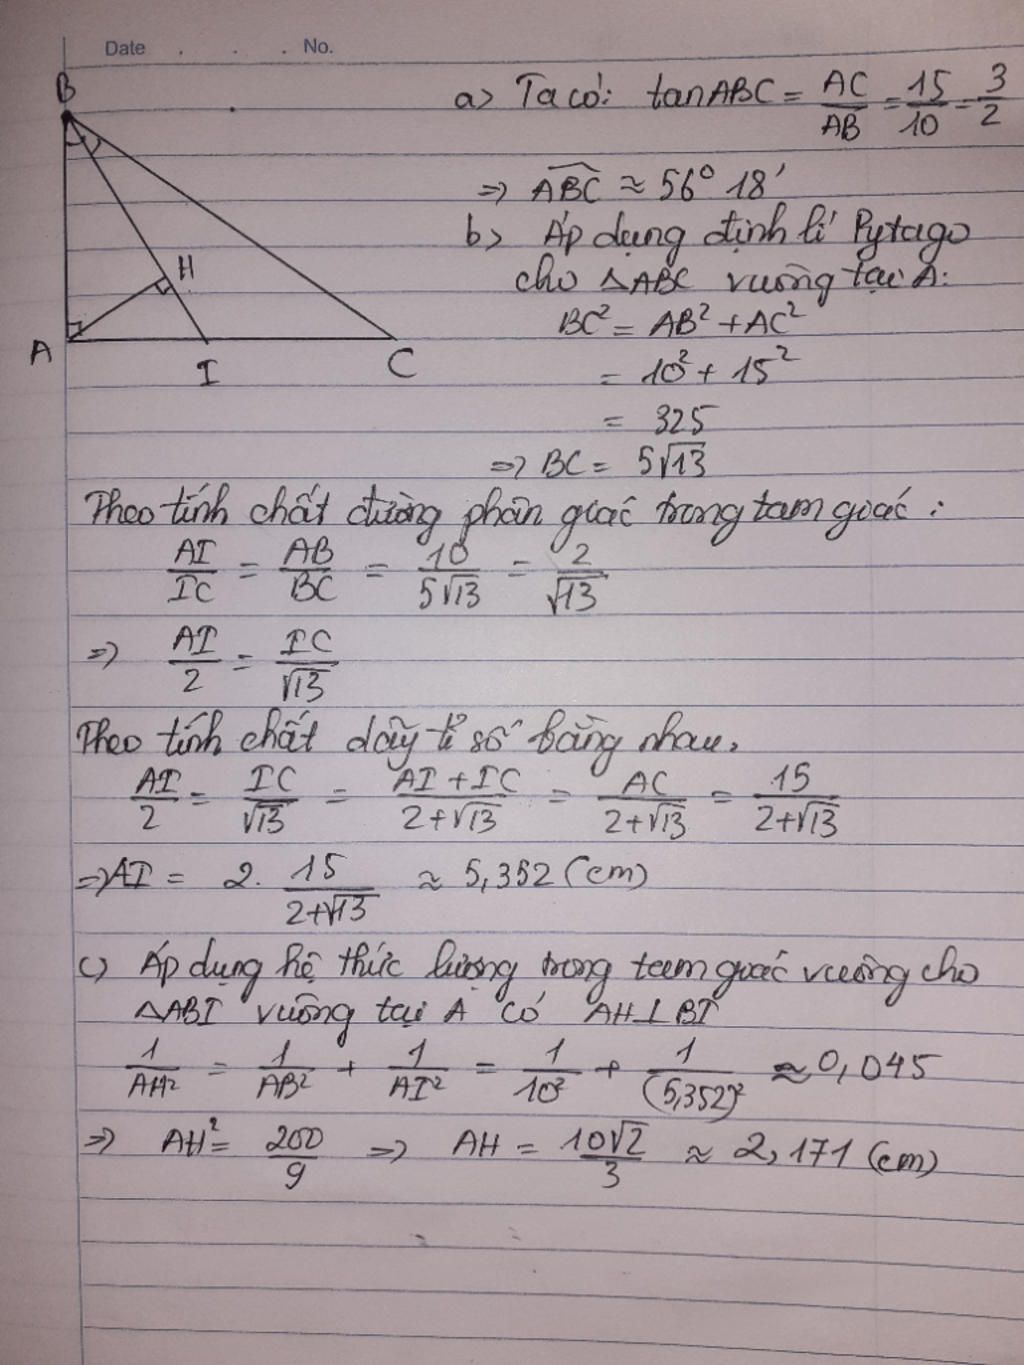 Date . . . No.
B
a> Ta có: tanABC = AC/AB = 15/10 = 3/2
=> ABC ≈ 56° 18'
b> Áp dụng định lí Pytago
H
cho △ABC vuông tại A:
BC² = AB² + AC²
A I C
= 10² + 15²
= 325
=> BC = 5√13
Theo tính chất đường phân giác trong tam giác :
AI/IC = AB/BC = 10/5√13 = 2/√13
=> AI/2 = IC/√13
Theo tính chất dãy tỉ số bằng nhau,
AI/2 = IC/√13 = AI + IC/2+√13 = AC/2+√13 = 15/2+√13
=> AI = 2. 15/2+√13 ≈ 5,352 (cm)
c) Áp dụng hệ thức lượng trong tam giác vuông cho
△ABI vuông tại A có AH⊥BI
1/AH² = 1/AB² + 1/AI² = 1/10² + 1/(5,352)² ≈ 0,045
=> AH² = 200/9 => AH = 10√2/3 ≈ 2,171 (cm)